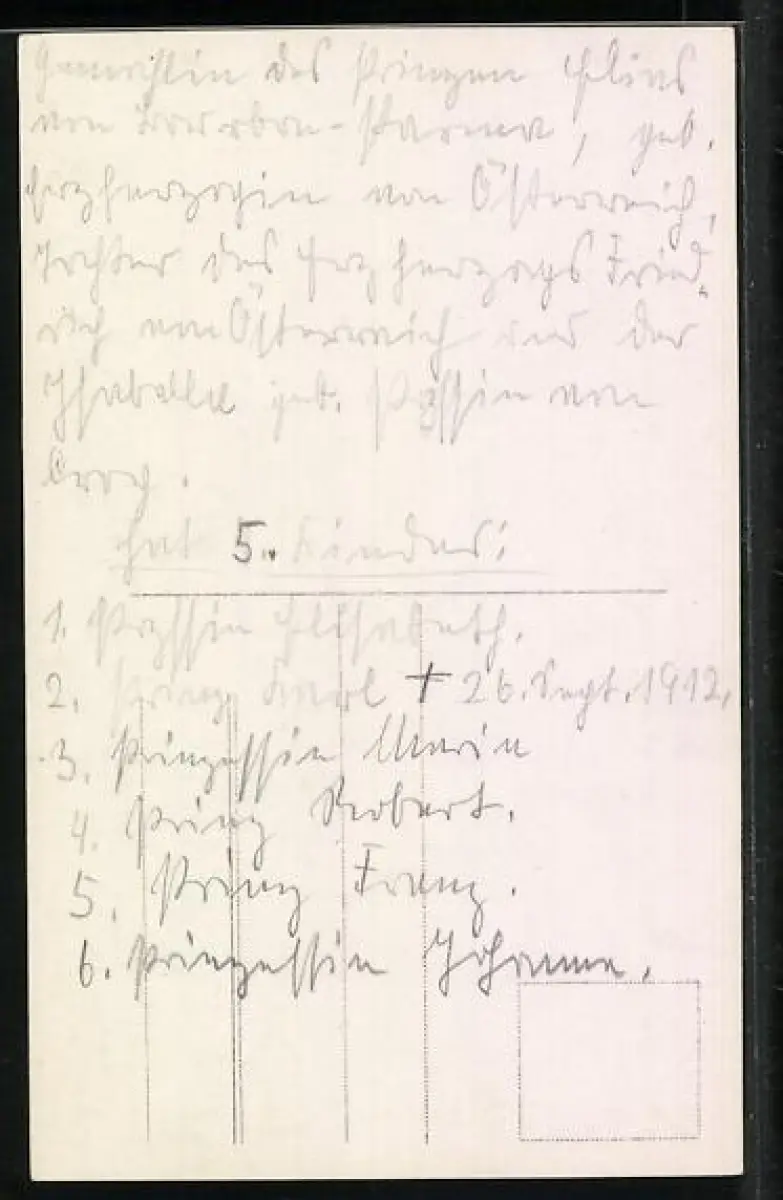 Gemahlin des Prinzen Elias
von Bourbon-Parma, geb.
Erzherzogin von Österreich,
Tochter des Erzherzogs Fried,
rich von Österreich und der
Isabella geb. Przssin von
Croy.
hat 5. Kinder:
1. Przssin Elisabeth.
2. Prinz Karl † 26. Sept. 1912.
3. Prinzessin Maria
4. Prinz Robert.
5. Prinz Franz.
6. Prinzessin Johanna.